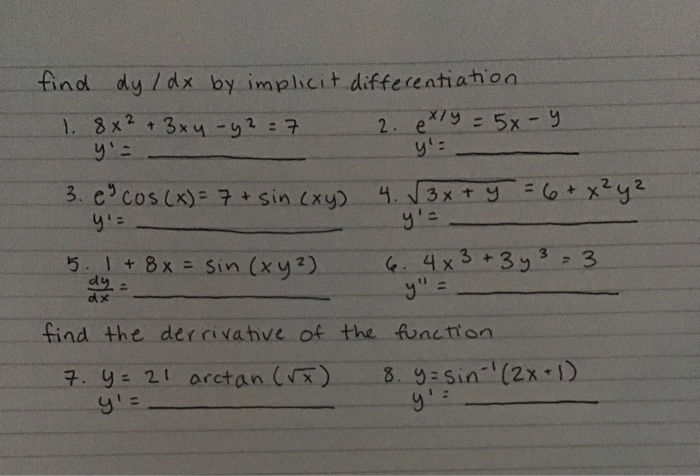 find dy/dx by implicit differentiation
1. 8x² + 3xy - y² = 7
2. e^x/y = 5x - y
y' =
y' =
3. e^y cos(x) = 7 + sin(xy)
4. √3x + y = 6 + x²y²
y' =
y' =
5. 1 + 8x = sin(xy²)
6. 4x³ + 3y³ = 3
dy/dx =
y'' =
find the derrivative of the function
7. y = 21 arctan(√x)
8. y = sin⁻¹(2x+1)
y' =
y' =